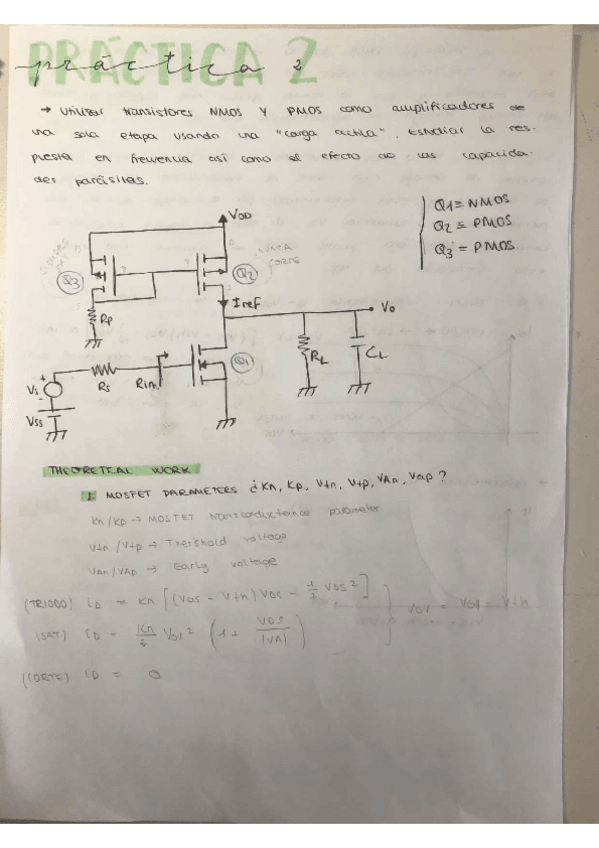 PRÁCTICA 2
práctica 2
→ Utilizar transistores NMOS y PMOS como amplificadores de
una sola etapa usando una "carga activa". Estudiar la res-
puesta en frecuencia así como el efecto de las capacida-
des parásitas.
VDD
Q1 ≡ NMOS
Q2 ≡ PMOS
Q3 ≡ PMOS
NUNCA
CORTE
Q3
Q2
Iref
Vo
Rp
Q1
RL
CL
Vs
Rs
Rin
Vss
THEORETICAL WORK
1. MOSFET PARAMETERS ¿Kn, Kp, Vtn, Vtp, VAn, Vap?
Kn/Kp → MOSTET transconductance parameter
Vtn/Vtp → Threshold voltage
VAn/VAp → Early voltage
(TRIODO) iD = Kn [(VGS - Vtn) VDS - 1/2 VDS²] } VOV = VGS - Vtn
(SAT) iD = Kn/2 VOV² (1 + VDS/|VA|)
(CORTE) iD = 0